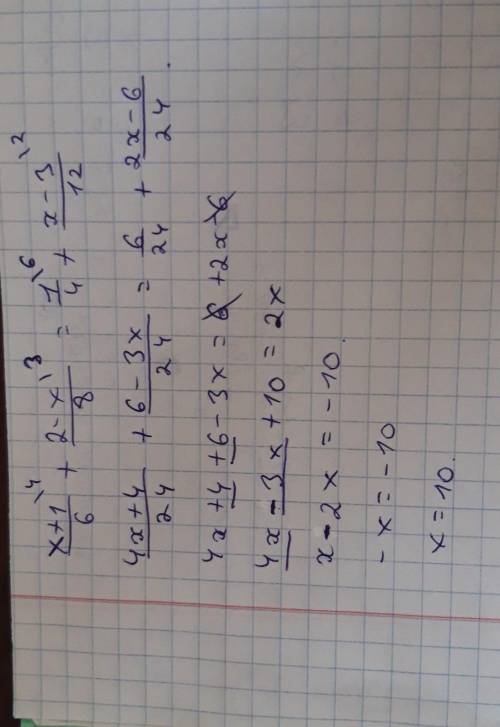 x+1\4/6 + 2-x\3/8 = 1\6/4 + x-3\2/12
4x+4/24 + 6-3x/24 = 6/24 + 2x-6/24.
4x+4+6-3x=6+2x-6
4x-3x+10=2x
x-2x=-10.
-x=-10
x=10.